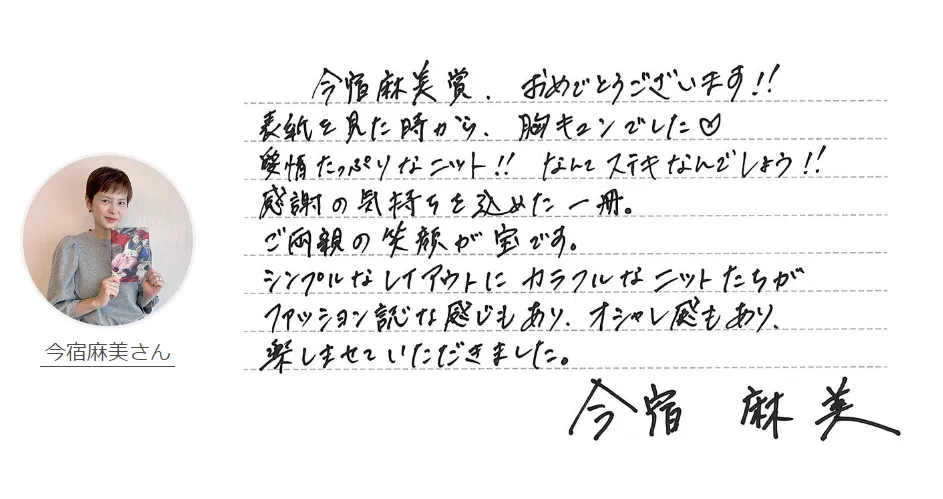 今宿麻美賞、おめでとうございます!!
表紙を見た時から、胸キュンでした♡
愛情たっぷりなニット!! なんてステキなんでしょう!!
感謝の気持ちを込めた一冊。
ご両親の笑顔が宝です。
シンプルなレイアウトにカラフルなニットたちが
ファッション誌な感じもあり、オシャレ感もあり、
楽しませていただきました。
今宿 麻美
今宿麻美さん